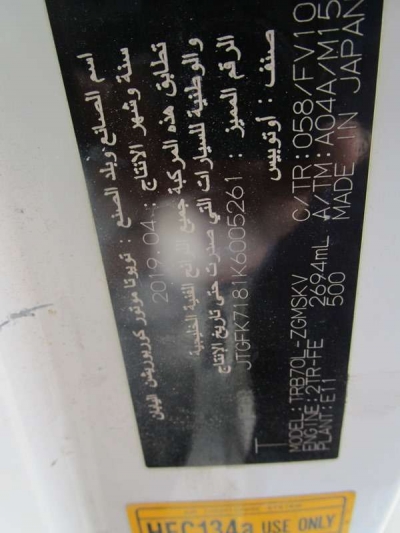 اسم الصانع وبلد الصنع : تويوتا موتور كوربوريشن اليابان
سنة وشهر الانتاج : 2019.04
تطابق هذه المركبة جميع اللوائح الفنية الخليجية
والوطنية للسيارات التي صدرت حتى تاريخ الإنتاج
الرقم المميز : JTGFK7181K6005261
صنف : أوتوبيس
T
MODEL:TRB70L-ZGMSKV C/TR:058/FV10
ENGINE:2TR-FE 2694mL A/TM:A04A/M15
PLANT:E11 500 MADE IN JAPAN
HFC134a USE ONLY